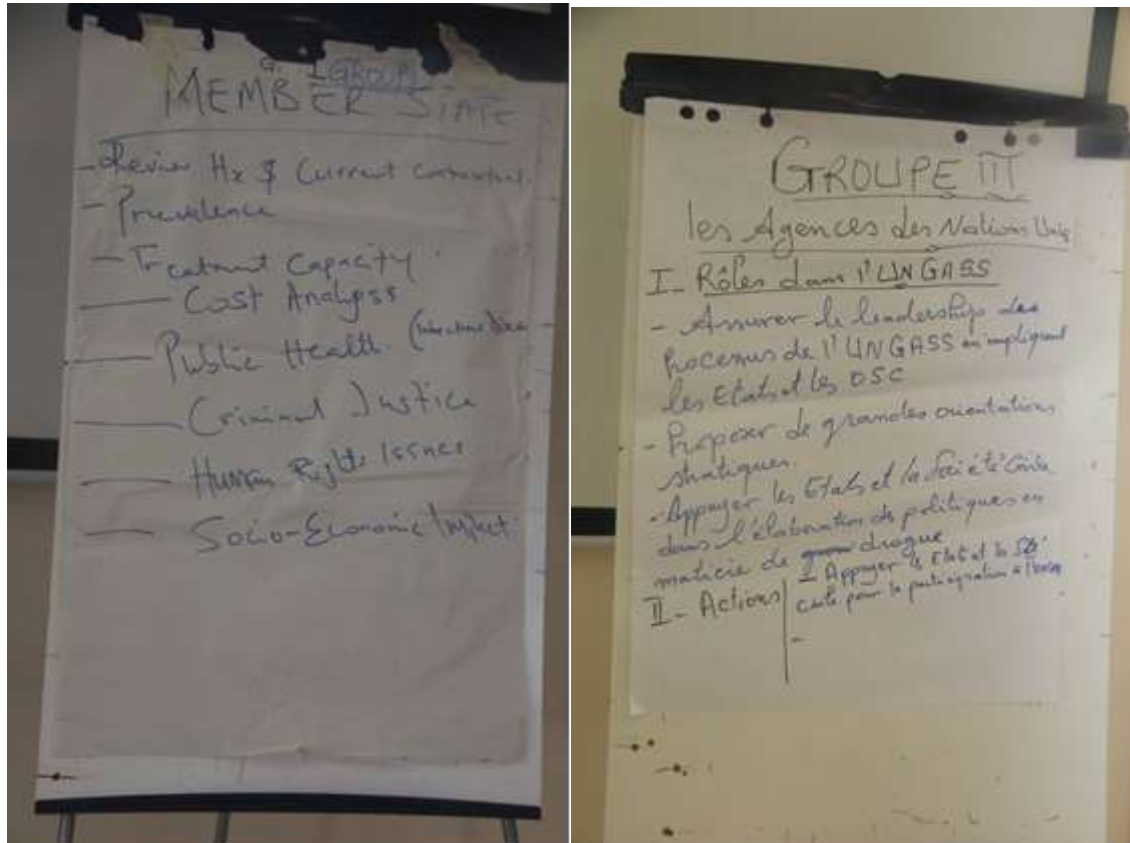 GROUP I
MEMBER STATE
- Review Hx & Current
- Prevalence
- Treatment Capacity.
Cost Analyss
Public Health. (
Criminal Justice
Human Right Issues
Socio-Economic Impact.
GROUPE III
les Agences des Nations Unies
I - Rôles dans l'UNGASS
- Assurer le leadership des
Processus de l'UNGASS en impliquant
les Etats et les OSC
- Proposer de grandes orientations
stratiques.
- Appuyer les Etats et la Société Civile
dans l'élaboration de politiques en
matière de drogue
II - Actions
- Appuyer les Etats et la Sté
Civile pour la participation à
-